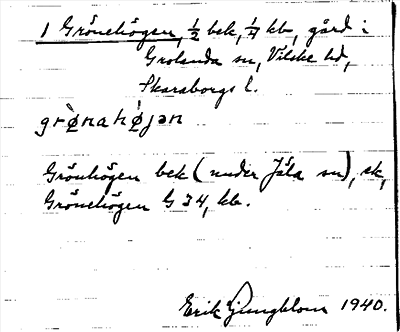 1 Grönehögen, 1/2 bek, 1/4 kb, gård i
Grolanda sn, Vilske hd,
Skaraborgs l.
grø̀nahø̀jən
Grönhögen bek (under Jäla sn), sk,
Grönehögen G 34, kb.
Erik Ljungblom 1940.